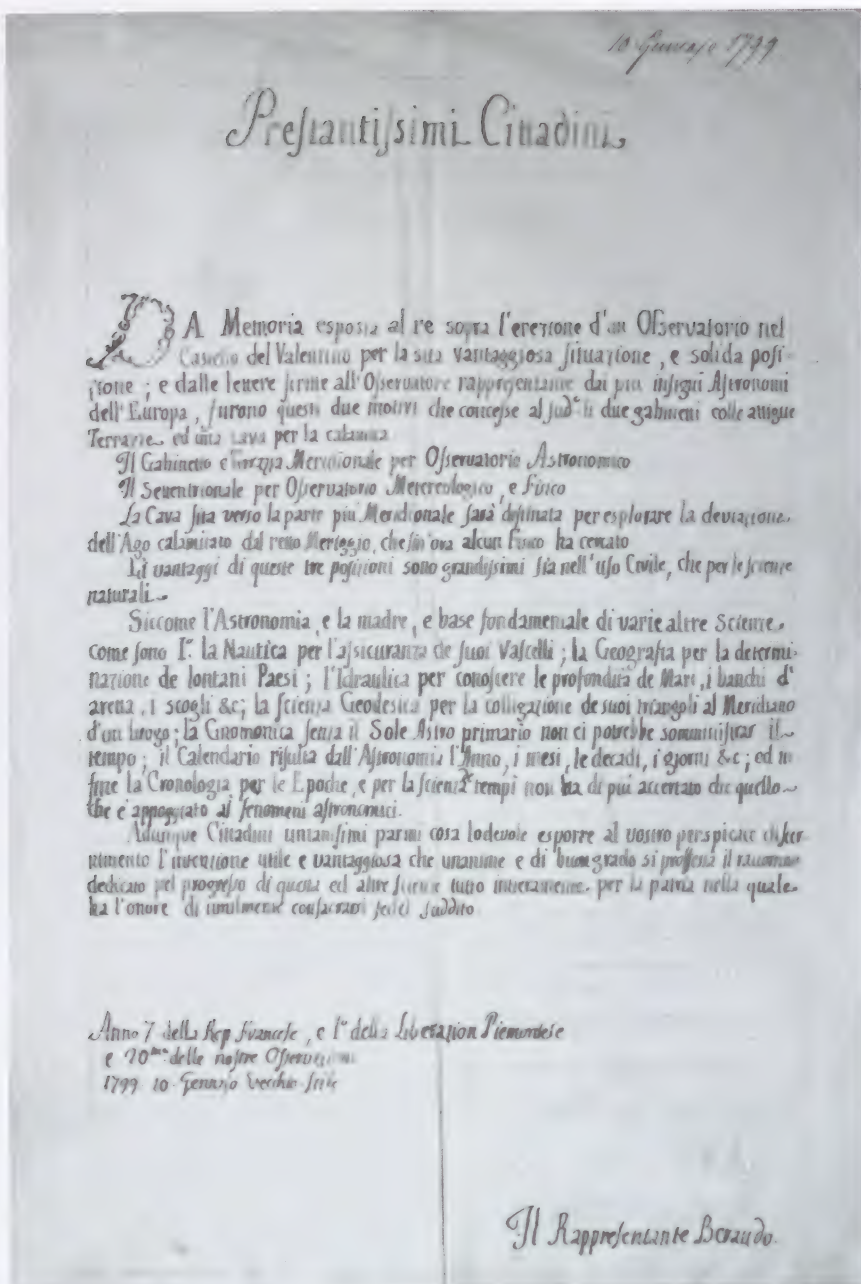 10 Gennajo 1799
Prestantissimi Cittadini
DA Memoria esposta al re sopra l'erezione d'un Osservatorio nel
Castello del Valentino per la sua vantaggiosa situazione, e solida posi-
zione; e dalle lettere firme all'Osservatore rappresentante dai piu insigni Astronomi
dell'Europa, furono questi due motivi che concesse al sud.to li due gabineti colle attigue
Terrazze ed una cava per la calamita
Il Gabinetto e Terazza Meridionale per Osservatorio Astronomico
Il Settentrionale per Osservatorio Metereologico, e Fisico
La Cava sita verso la parte piu Meridionale sarà destinata per esplorare la deviazione
dell'Ago calamitato dal retto Meriggio, che sin'ora alcun Fisico ha tentato
Li vantaggi di queste tre posizioni sono grandissimi sia nell'uso Civile, che per le scienze
naturali
Siccome l'Astronomia, e la madre, e base fondamentale di varie altre Scienze
come sono I.º la Nautica per l'assicuranza de suoi Vascelli; la Geografia per la determi-
nazione de lontani Paesi; l'Idraulica per conoscere le profondità de Mari, i banchi d'
arena, i scogli &c; la scienza Geodesica per la colligazione de suoi triangoli al Meridiano
d'un luogo; la Gnomonica senza il Sole Astro primario non ci potrebbe somministrar il
tempo; il Calendario risulta dall'Astronomia l'Anno, i mesi, le decadi, i giorni &c; ed in
fine la Cronologia per le Epoche, e per la scienza tempi non ha di piú accertato che quello
che è appoggiato ai fenomeni astronomici.
Adunque Cittadini umanissimi parmi cosa lodevole esporre al vostro perspicace discer-
nimento l'invenzione utile e vantaggiosa che unanime e di buon grado si professa il
dedicato pel progresso di questa ed altre scienze tutto interamente per la patria nella quale
ha l'onore di umilmente consacrarsi fedel suddito
Anno 7 della Rep Francese, e I.º della Liberazion Piemontese
e 20 delle nostre Osservazioni
1799 10 Gennajo Vecchio stile
Il Rappresentante Beraudo.